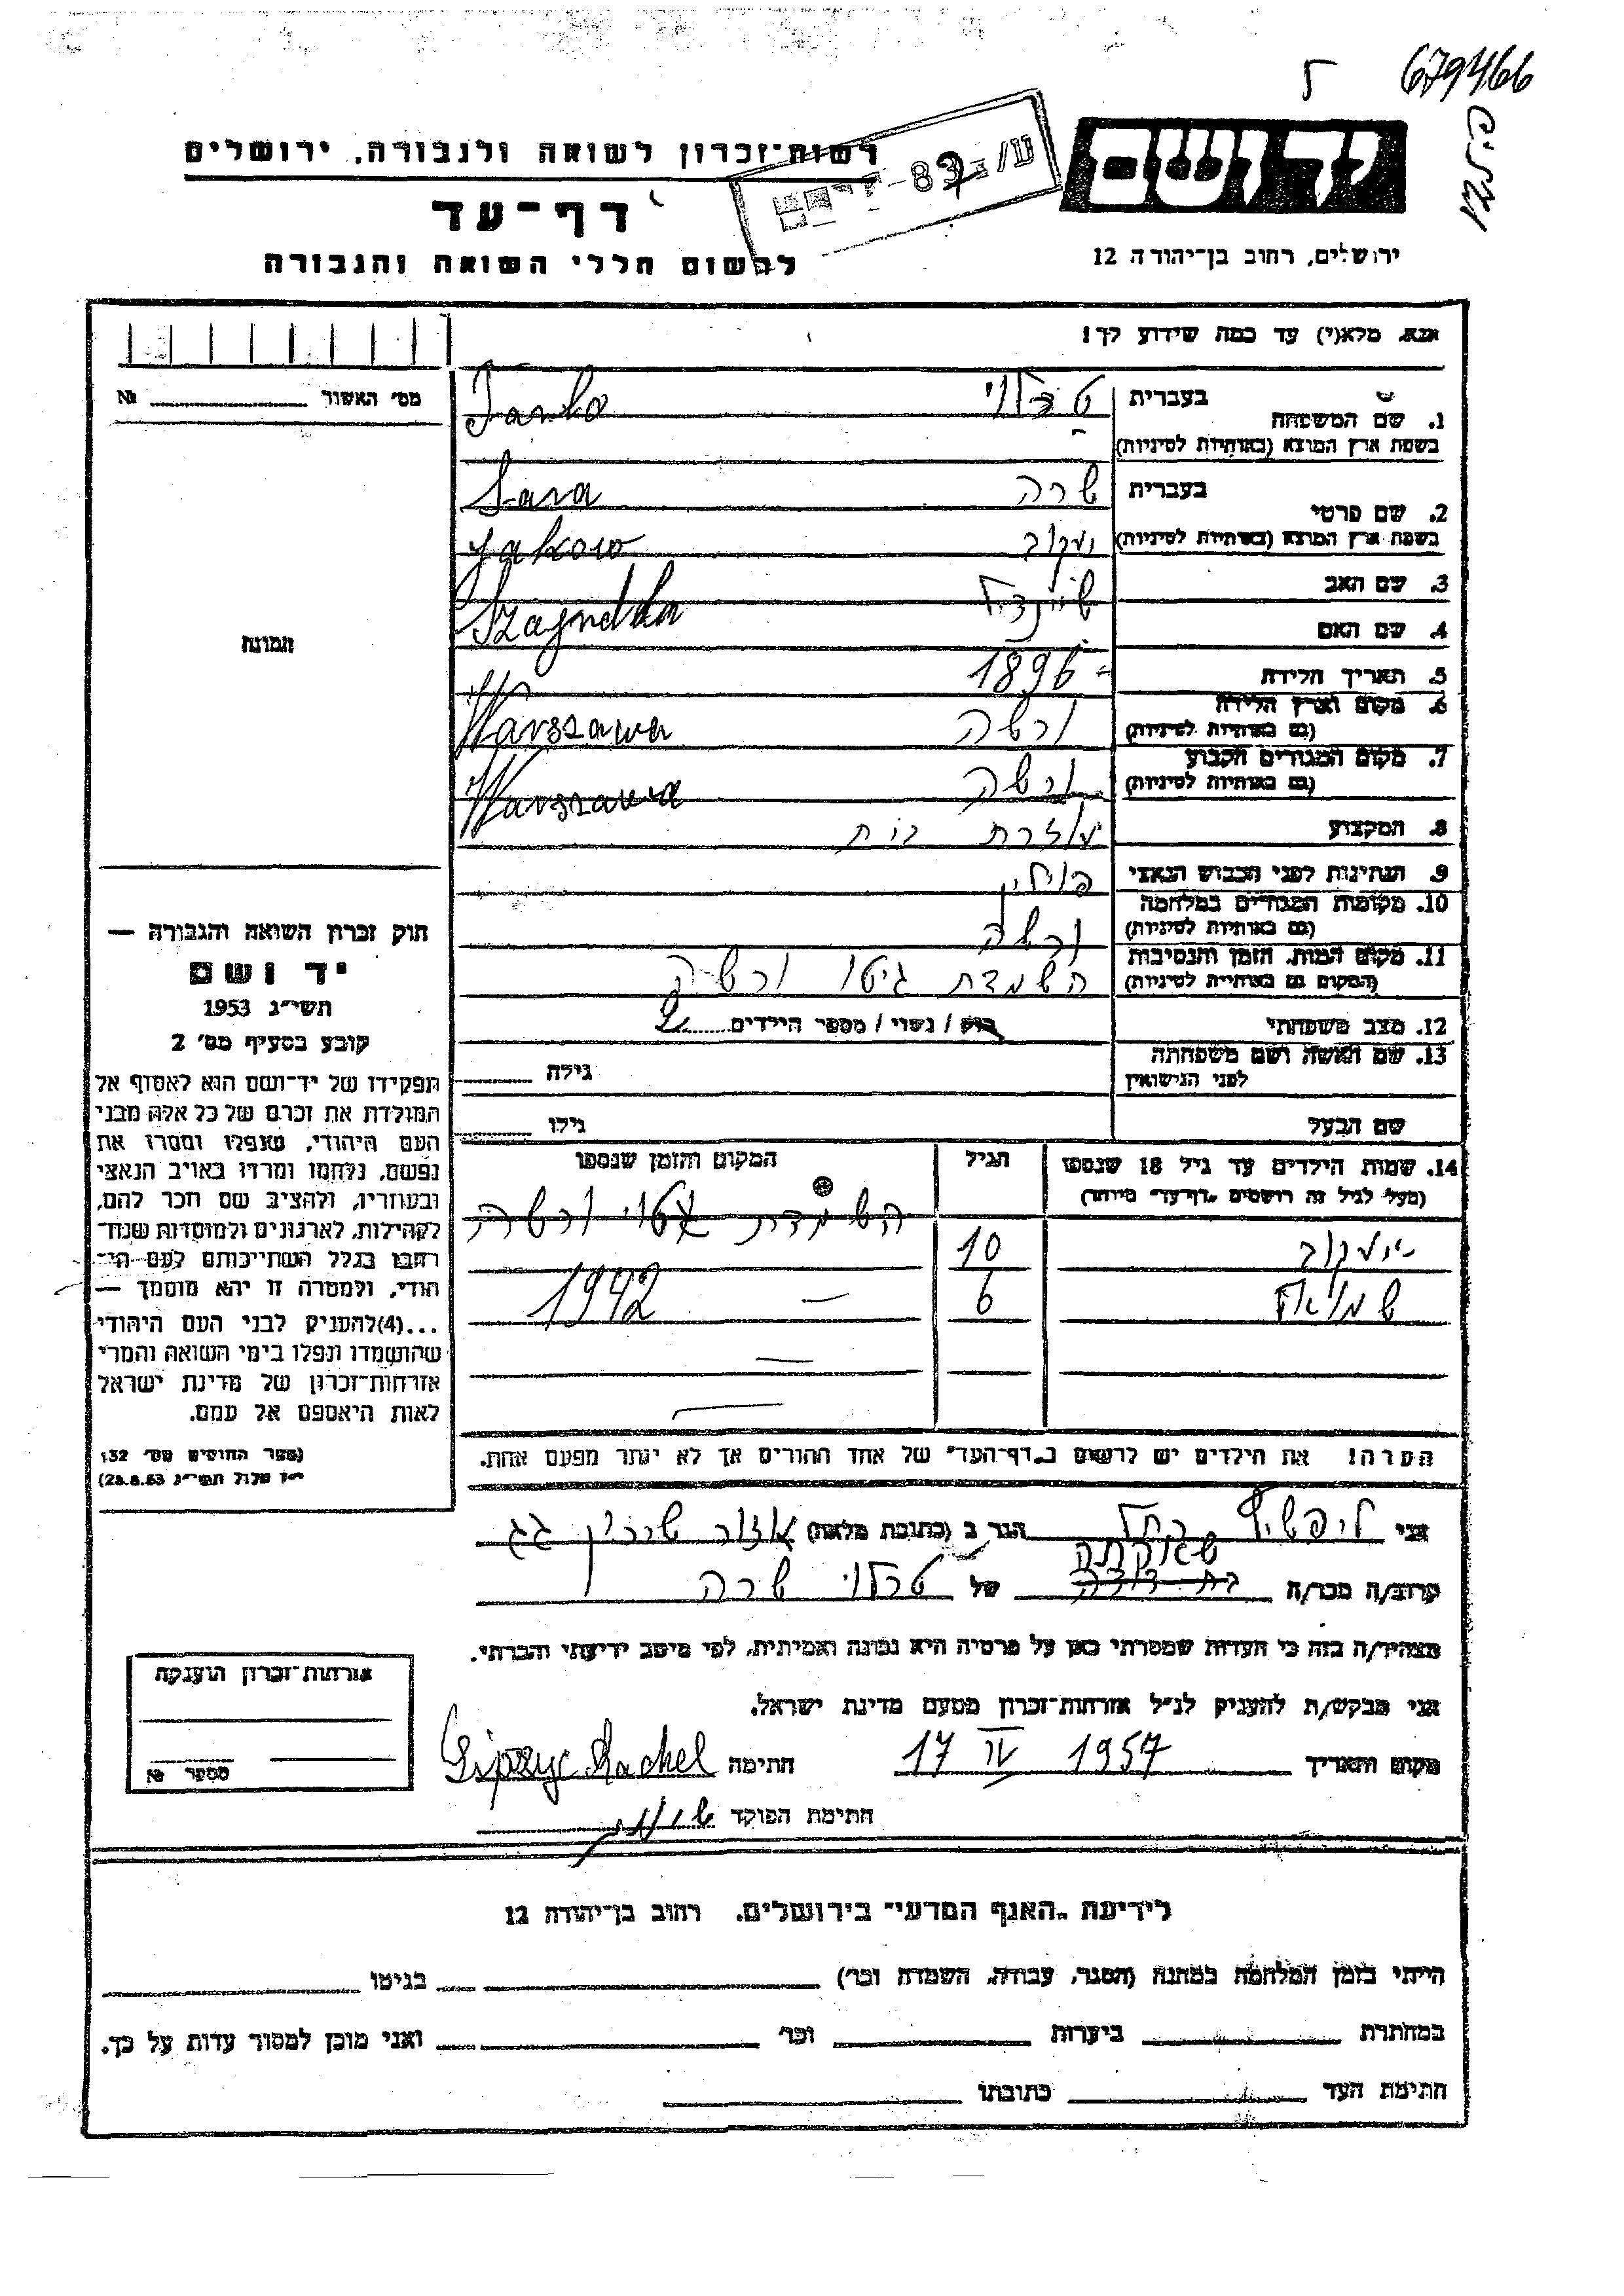 679466
פולין
יד ושם
ירושלים, רחוב בן־יהודה 12
רשות־זכרון לשואה ולגבורה, ירושלים
דף־עד
לרשום חללי השואה והגבורה
אנא, מלא(י) עד כמה שידוע לך!
מס׳ האשור № 
1. שם המשפחה בעברית
בשפת ארץ המוצא (באותיות לטיניות)
2. שם פרטי בעברית שרה Sara
בשפת ארץ המוצא (באותיות לטיניות) יעקוב Jakow
3. שם האב
4. שם האם
5. תאריך הלידה 1896
6. מקום וארץ הלידה ורשה Warszawa
(גם באותיות לטיניות)
7. מקום המגורים הקבוע ורשה Warszawa
(גם באותיות לטיניות)
8. המקצוע עוזרת בית
9. הנתינות לפני הכבוש הנאצי פולין
10. מקומות המגורים במלחמה ורשה
(גם באותיות לטיניות)
11. מקום המות, הזמן והנסיבות השמדת גיטו ורשה
(המקום גם באותיות לטיניות)
12. מצב משפחתי רוק / נשוי / מספר הילדים 2
13. שם האשה ושם משפחתה גילה
לפני הנישואין
שם הבעל גילו
תמונה
חוק זכרון השואה והגבורה —
יד ושם
תשי״ג 1953
קובע בסעיף מס׳ 2
תפקידו של יד־ושם הוא לאסוף אל
המולדת את זכרם של כל אלה מבני
העם היהודי, שנפלו ומסרו את
נפשם, נלחמו ומרדו באויב הנאצי
ובעוזריו, ולהציב שם וזכר להם,
לקהילות, לארגונים ולמוסדות שנח־
רבו בגלל השתייכותם לעם הי־
הודי, ולמטרה זו יהא מוסמך —
...(4)להעניק לבני העם היהודי
שהושמדו ונפלו בימי השואה והמרי
אזרחות־זכרון של מדינת ישראל
לאות היאספם אל עמם.
(ספר החוקים מס׳ 132
י״ז אלול תשי״ג 28.8.53)
14. שמות הילדים עד גיל 18 שנספו הגיל המקום והזמן שנספו
(מעל לגיל זה רושמים „דף־עד״ מיוחד)
השמדת גטו ורשה
יעקוב 10
שמואל 6 1942
הערה! את הילדים יש לרשום ב„דף־העד״ של אחד ההורים אך לא יותר מפעם אחת.
אני ליפשיץ רחל הגר ב (כתובת מלאה)
שגוקתה
קרוב/ה מכר/ה בת דודה של שרה
מצהיר/ה בזה כי העדות שמסרתי כאן על פרטיה היא נכונה ואמיתית, לפי מיטב ידיעתי והכרתי.
אני מבקש/ת להעניק לנ״ל אזרחות־זכרון מטעם מדינת ישראל.
מקום ותאריך 17 IV 1957 חתימה Lipszyc Rachel
חתימת הפוקד
אזרחות־זכרון הוענקה
מספר №
לידיעת „האגף המדעי״ בירושלים, רחוב בן־יהודה 12
הייתי בזמן המלחמה במחנה (הסגר, עבודה, השמדה וכר׳) בגיטו
במחתרת ביערות וכר׳ ואני מוכן למסור עדות על כך.
חתימת העד כתובתו